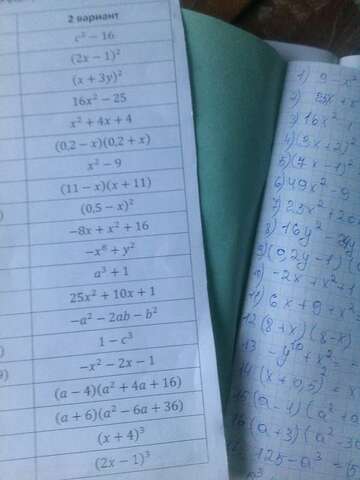 2 вариант
c² − 16
(2x − 1)²
(x + 3y)²
16x² − 25
x² + 4x + 4
(0,2 − x)(0,2 + x)
x² − 9
(11 − x)(x + 11)
(0,5 − x)²
−8x + x² + 16
−x⁶ + y²
a³ + 1
25x² + 10x + 1
−a² − 2ab − b²
1 − c³
−x² − 2x − 1
(a − 4)(a² + 4a + 16)
(a + 6)(a² − 6a + 36)
(x + 4)³
(2x − 1)³
1) 9 − x²
2)
3) 16x²
4) (3x+2)²
5) (7x−1)²
6) 49x² − 9
7) 25x² +
8) 16y² −
9) (0,2y − 1)
10) −2x + x² +
11) 6x + 9 + x²
12 (8 + x)(8 − x)
13 − y¹⁰ + x² =
14 (x + 0,5)²
15 (a − 1)(a² +
16 (a + 3)(a² − 3
125 − a³ =